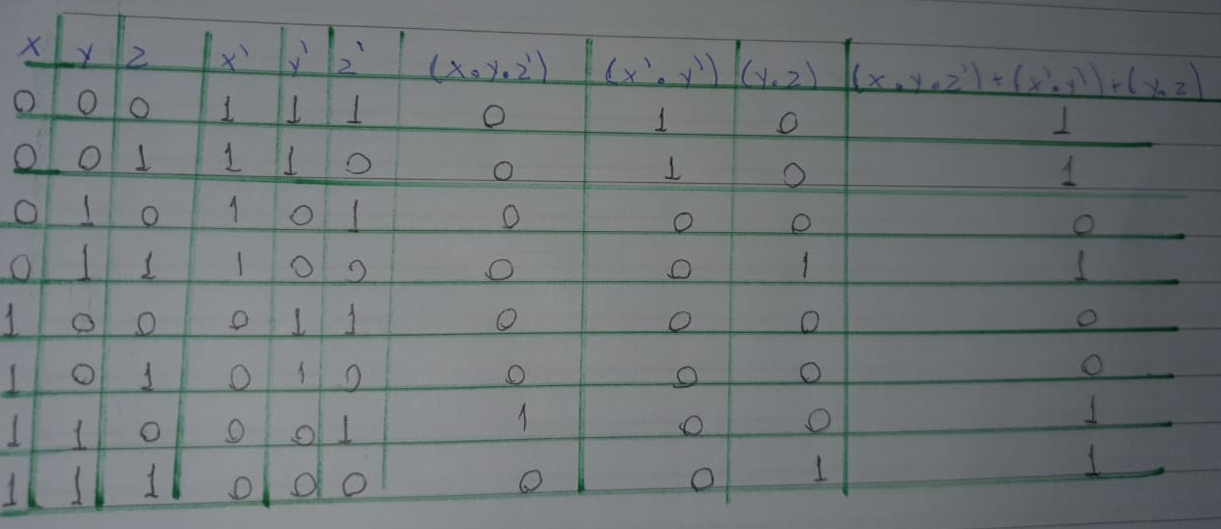 x y z x' y' z' (x.y.z') (x'.y') (y.z) (x.y.z')+(x'.y')+(y.z)
0 0 0 1 1 1 0 1 0 1
0 0 1 1 1 0 0 1 0 1
0 1 0 1 0 1 0 0 0 0
0 1 1 1 0 0 0 0 1 1
1 0 0 0 1 1 0 0 0 0
1 0 1 0 1 0 0 0 0 0
1 1 0 0 0 1 1 0 0 1
1 1 1 0 0 0 0 0 1 1